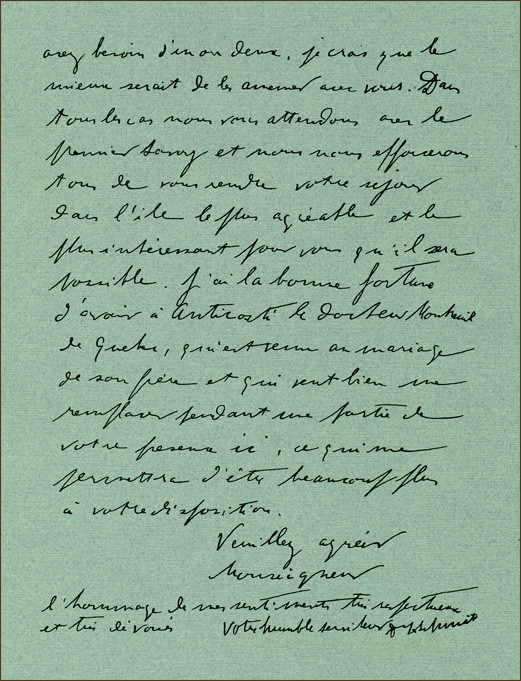 avez besoin d'un ou deux, je crois que le
mieux serait de les amener avec vous. Dans
tous les cas nous vous attendons avec le
premier Savoy et nous nous efforcerons
tous de vous rendre votre séjour
dans l'île le plus agréable et le
plus intéressant pour vous qu'il sera
possible. J'ai la bonne fortune
d'avoir à Anticosti le docteur Monteuil
de Quebec, qui est venu au mariage
de son frère et qui veut bien me
remplacer pendant une partie de
votre présence ici, ce qui me
permettra d'être beaucoup plus
à votre disposition.
Veuillez agréer
Monseigneur
l'hommage de mes sentiments très respectueux
et très dévoués Votre humble serviteur Schmitt